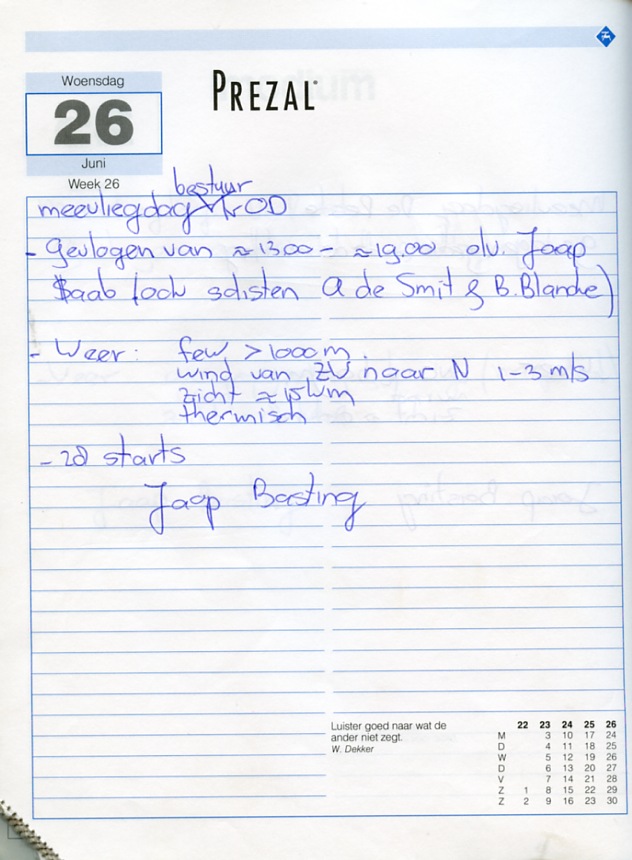 Woensdag
26
Juni
Week 26
PREZAL
bestuur
meevliegdag VrOD
- Gevlogen van ≈ 13.00 - ≈ 19.00 olv. Jaap
Baab (ook solisten A de Smit & B. Blanche)
- Weer: few > 1000 m.
wind van ZW naar N 1-3 m/s
zicht ≈ 15 km
thermisch
- 28 starts
Jaap Basting
Luister goed naar wat de
ander niet zegt.
W. Dekker
22 23 24 25 26
M 3 10 17 24
D 4 11 18 25
W 5 12 19 26
D 6 13 20 27
V 7 14 21 28
Z 1 8 15 22 29
Z 2 9 16 23 30